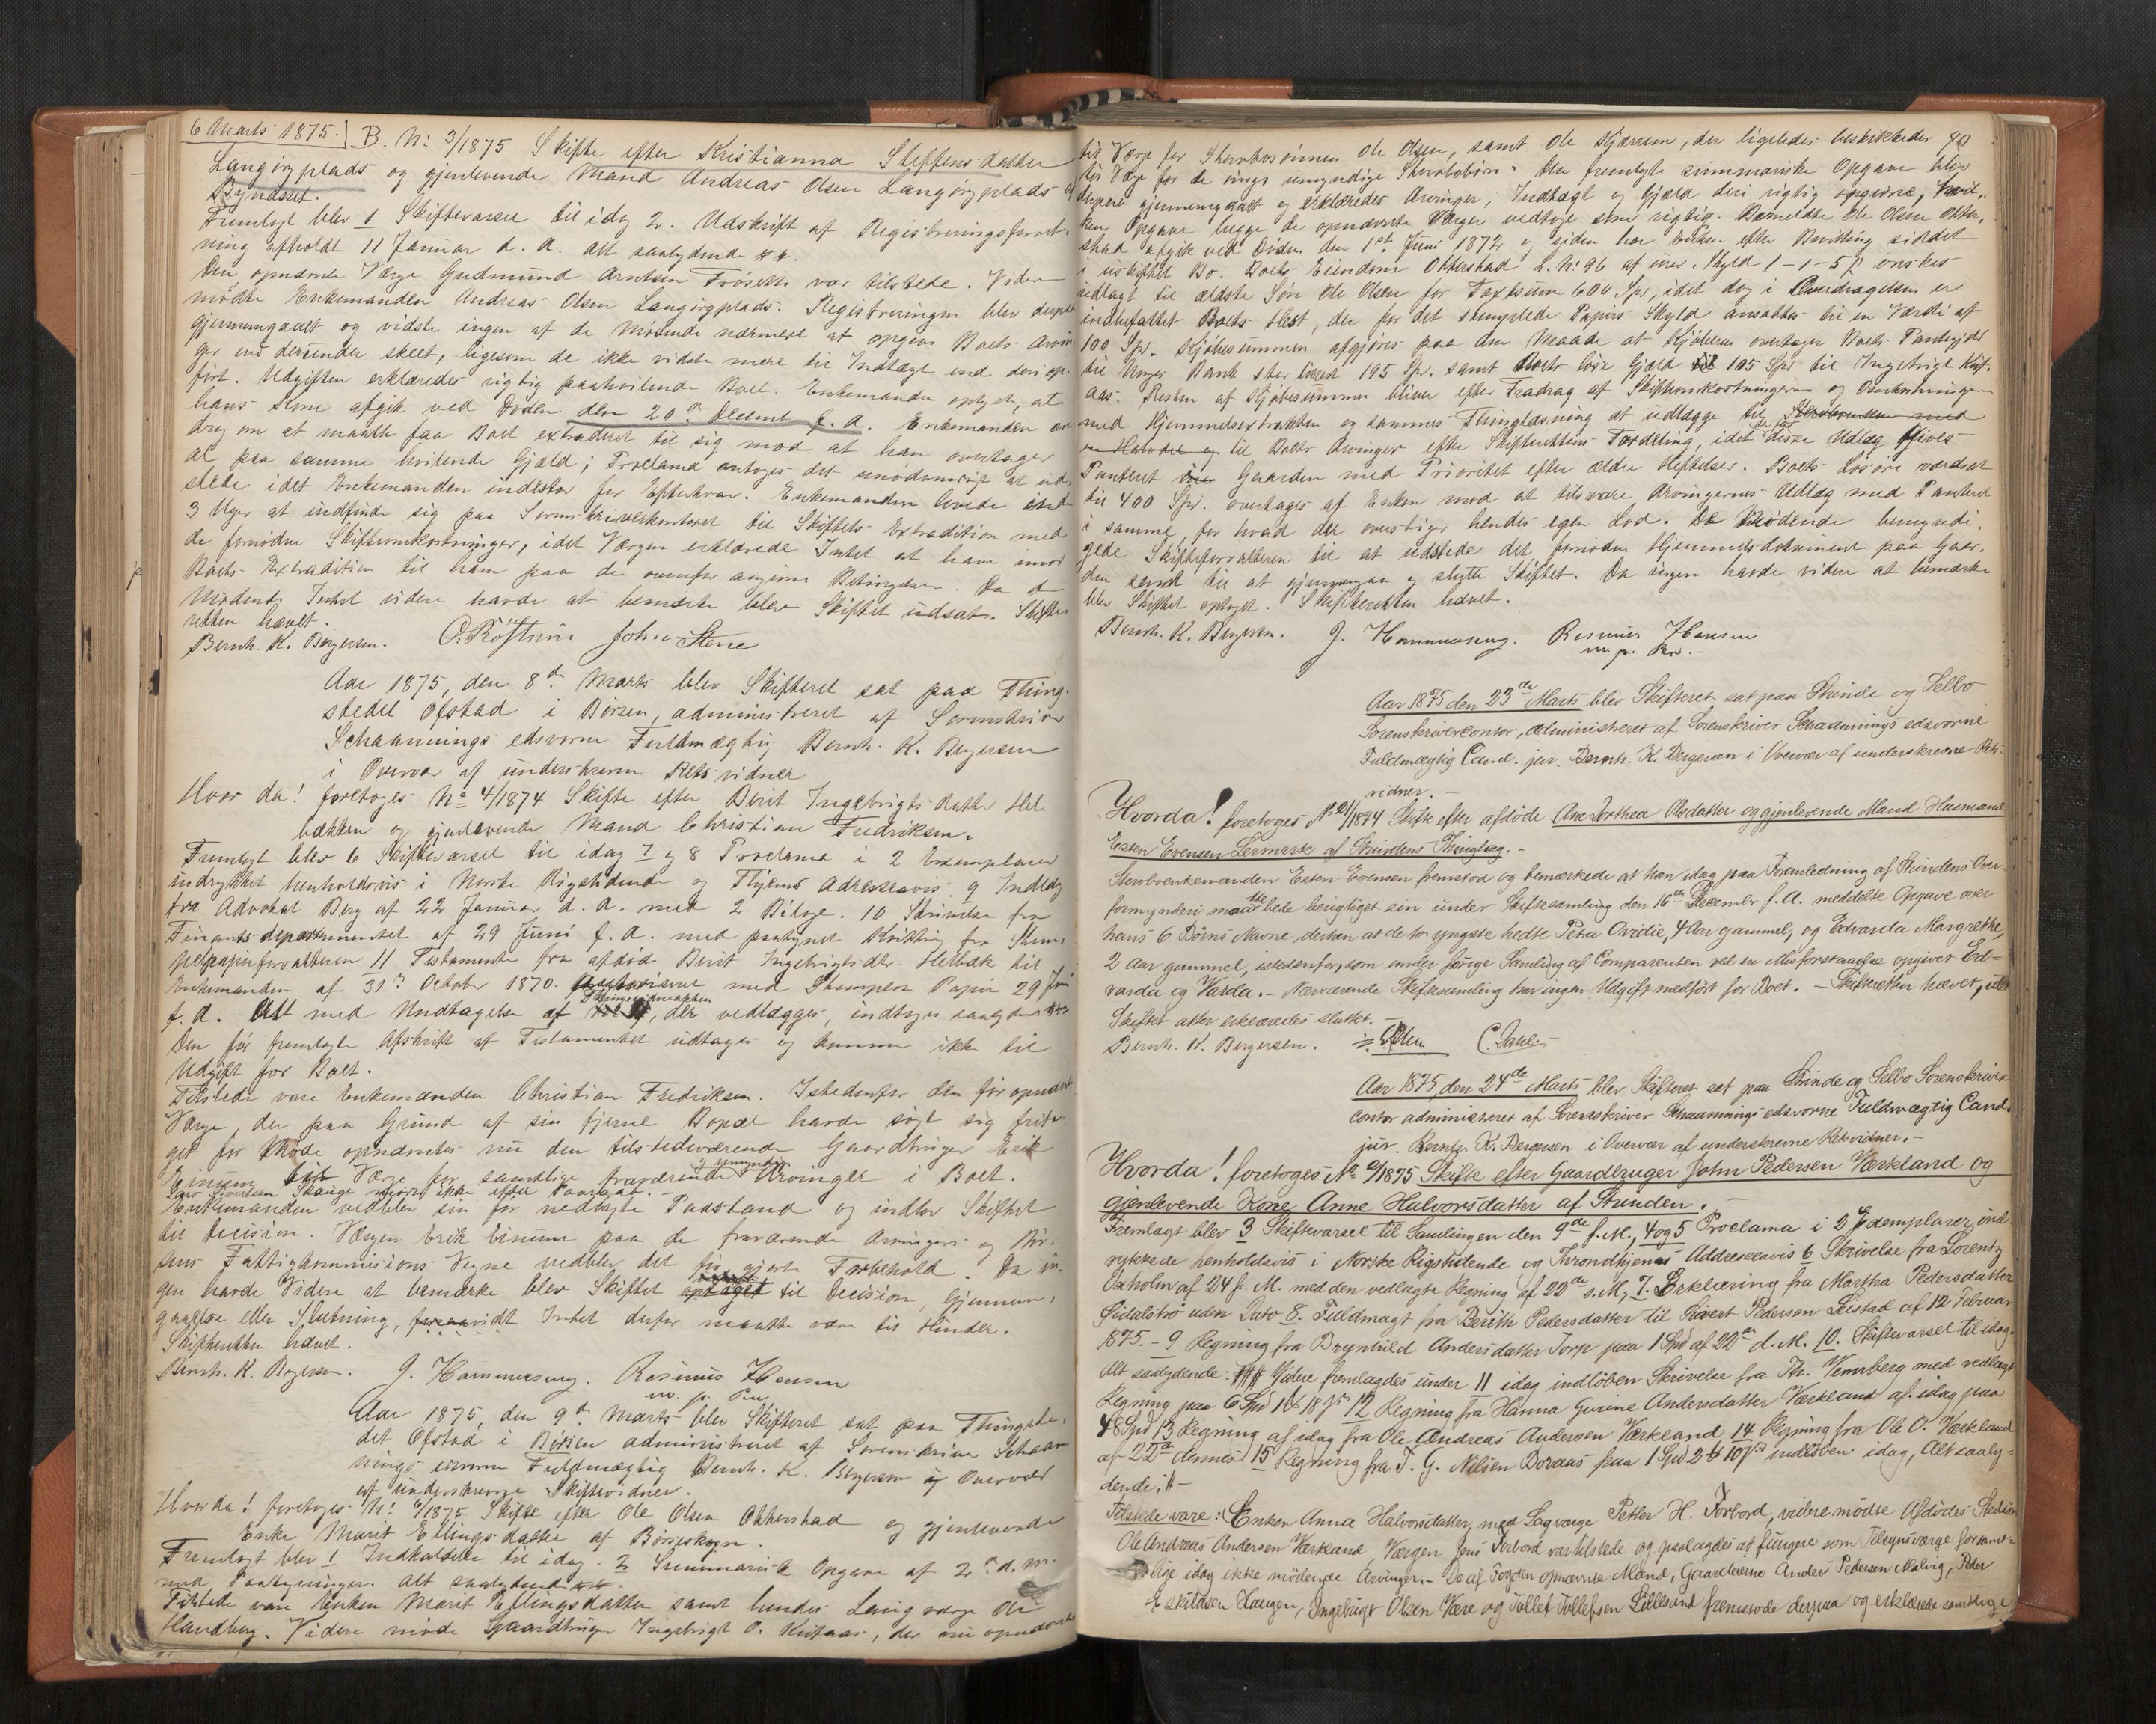 6 Marts 1875. B. No 3/1875 Skifte efter Kristianna Steffensdatter
Langørgplads og gjenlevende Mand Andreas Olsen Langørgplads af
Bynæsset.
Fremlagt blev 1 Skiftevarsel til idag 2. Udskrift af Registreringsforret-
ning afholdt 11 Januar d. A. alt saalydende
Den opnævnte Værge Gudmund Arntsen Frøseth var tilstede. Videre
mødte Enkemanden Andreas Olsen Langørgplads. Registreringen blev derpaa
gjennemgaaet og vidste ingen af de Mødende nærmere at opgive Boets Arvin-
ger end derunder skeet, ligesom de ikke vidste mere til Indtægt end deri op-
ført. Udgiften erklæredes rigtig paahvilende Boet. Enkemanden oplyste, at
hans Kone afgik ved Døden den 20de Decembr f. A. Enkemanden an-
drog om at maatte faa Boet extraderet til sig mod at han overtager
al paa samme hvilende Gjæld; Proclama antoges det unødvendigt at ud-
stede idet Enkemanden indestaar for Efterkrav. Enkemanden lovede inden
3 Uger at indfinde sig paa Sorenskriverkontoret til Skiftets Extradition med
de fornødne Skifteomkostninger, idet Værgen erklærede Intet at have imod
Boets Extradition til ham paa de ovenfor angivne Betingelser. Da de
Mødende Intet videre havde at bemærke blev Skiftet udsat. Skifte-
retten hævet.
Bernh. K. Bergersen. John Stene
Aar 1875, den 8de Marts blev Skifteret sat paa Thing-
stedet Ofstad i Børsen, administreret af Sorenskriver
Schaannings edsvorne Fuldmægtig Bernh. K. Bergersen
i Overvær af underskrevne Retsvidner
Hvor da! foretoges No 4/1874 Skifte efter Berit Ingebrigtsdatter Hel-
bækken og gjenlevende Mand Christian Fredriksen.
Fremlagt blev 6 Skiftevarsel til idag 7 og 8 Proclama i 2 Exemplarer
indrykket henholdsvis i Norske Rigstidende og Thjems Adresseavis 9 Indlæg
fra Advokat Berg af 22 Januar d. A. med 2 Bilage. 10 Skrivelse fra
Finantsdepartementet af 29 Juni f. A. med paategnet Kvittering fra Stem-
pelpapirforvalteren 11 Testamente fra afdøde Berit Ingebrigtsdtr. Helbæk til
Enkemanden af 31te October 1870. med Stemplet Papir 29 Juni
f. A. Alt med Undtagelse af der vedlægges, indtages saalydende
Den før fremlagte Afskrift af Testamentet udtages og kommer ikke til
Udgift for Boet.
Tilstede vare Enkemanden Christian Fredriksen. Istedenfor den før opnævnte
Værge, der paa Grund af sin fjerne Bopæl havde søgt sig frita-
get for Møde opnævntes nu den tilstedeværende Gaardbruger Erik
Einum til Værge for samtlige fraværende og umyndige Arvinger i Boet.
Lars Sivertsen Skauge mødte ikke efter Paaraab.
Enkemanden vedblev sin før nedlagte Paastand og indlod Skiftet
til Decision. Værgen Erik Einum paa de fraværende Arvingers og Bør-
sens Fattigkommissions Vegne vedblev det før gjorte Forbehold. Da in-
gen havde Videre at bemærke blev Skiftet optaget til Decision, Gjennem-
gaaelse eller Slutning, forsaavidt Intet derfor maatte være til Hinder.
Skifteretten hævet.
Bernh. K. Bergersen. J. Hammersug. Rasmus Hansen
m. p. Pen
Aar 1875, den 9de Marts blev Skifteret sat paa Thingste-
det Ofstad i Børsen administreret af Sorenskriver Schaan-
nings edsvorne Fuldmægtig Bernh. K. Bergersen i Overvær
af underskrevne Skiftevidner.
Hvor da! foretoges No 6/1875 Skifte efter Ole Olsen Okterstad og gjenlevende
Enke Marit Ellingsdatter af Børseskogn.
Fremlagt blev 1 Indkaldelse til idag. 2 Summarisk Opgave af 2de d. M.
med Paategninger. Alt saalydende
Tilstede vare Enken Marit Ellingsdatter samt hendes Laugværge Ole
Handberg. Videre mødte Gaardbruger Ingebrigt O. Kufaas, der nu opnævntes
90
til Værge for Stervbosønnen Ole Olsen, samt Ole Kjærem, der ligeledes beskikkedes
til Værge for de øvrige umyndige Stervbobørn. Den fremlagte summariske Opgave blev
derpaa gjennemgaaet og erklæredes Arvinger, Indtægt og Gjæld deri rigtig opgivne, hvil-
ken Opgave begge de opnævnte Værger vedtoge som rigtig. Bemeldte Ole Olsen Okter-
stad afgik ved Døden den 1ste Juni 1872 og siden har Enken efter Bevilling siddet
i uskiftet Bo. Boets Eiendom Okterstad L. No 96 af urev. Skyld 1-1-5 β ønskes
udlagt til ældste Søn Ole Olsen for Taxtsum 600 Spd, idet dog i Overdragelsen er
indbefattet Boets Hest, der for det stemplede Papirs Skyld ansættes til en Værdi af
100 Spd. Kjøbesummen afgjøres paa den Maade at Kjøberen overtager Boets Pantegjæld
til Norges Bank stor 195 Spd. samt Boets løse Gjæld 105 Spd til Ingebrigt Kuf-
aas. Resten af Kjøbesummen bliver efter Fradrag af Skifteomkostningerne og Omkostninger
med Hjemmelsextrakten og sammes Thinglæsning at udlægge til Stervboenken med
en Halvdel og til Boets Arvinger efter Skifterettens Fordeling, idet der for disse Udlæg gives
Panteret i Gaarden med Prioritet efter ældre Heftelser. Boets Løsøre værdsat
til 400 Spd. overtages af Enken mod at tilsvare Arvingernes Udlæg med Panteret
i samme, for hvad der overstiger hendes egen Lod. De Mødende bemyndi-
gede Skifteforvalteren til at udstede det fornødne Hjemmelsdokument paa Gaar-
den samt til at gjennemgaa og slutte Skiftet. Da ingen havde videre at bemærke
blev Skiftet optaget. Skifteretten hævet.
Bernh. K. Bergersen. J. Hammersug. Rasmus Hansen
m. p. Pen.
Aar 1875 den 23de Marts blev Skifteret sat paa Strinde og Selbo
Sorenskrivercontor, administreret af Sorenskriver Schaannings edsvorne
Fuldmægtig Cand. jur. Bernh. K. Bergersen i Overvær af underskrevne Rets-
vidner.
Hvorda! foretoges No 21/1874 Skifte efter afdøde Ane Dorthea Olsdatter og gjenlevende Mand Husmand
Esten Evensen Lermark af Strindens Thinglag.
Stervboenkemanden Esten Evensen fremstod og bemærkede at han idag paa Foranledning af Strindens Over-
formynderi maatte bede berigtiget sin under Skiftesamling den 16de Decembr f. A. meddelte Opgave over
hans 6 Børns Navne, derhen at de to yngste hedte Petra Ovidie, 4 Aar gammel, og Edvarda Margrethe,
2 Aar gammel, istedenfor, som under forrige Samling af Comparenten ved en Misforstaaelse opgivet Ed-
varda og Varda. Nærværende Skiftesamling har ingen Udgift medført for Boet. Skifteretten hævet, idet
Skiftet atter erklæredes sluttet.
Bernh. K. Bergersen. C. Dahl.
Aar 1875, den 24de Marts blev Skifteret sat paa Strinde og Selbo Sorenskriver-
contor administreret af Sorenskriver Schaannings edsvorne Fuldmægtig Cand.
jur. Bernh. K. Bergersen i Overvær af underskrevne Retsvidner.
Hvorda! foretoges No 2/1875 Skifte efter Gaardbruger John Pedersen Værkland og
gjenlevende Kone Anne Halvorsdatter af Strinden.
Fremlagt blev 3 Skiftevarsel til Samlingen den 9de f. M., 4 og 5 Proclama i 2 Exemplarer, ind-
rykkede henholdsvis i Norske Rigstidende og Throndhjems Addresseavis 6 Skrivelse fra Lorentz
Oxholm af 24 f. M. med den vedlagte Regning af 22de s. M., 7. Erklæring fra Martha Pedersdatter
uden Dato 8. Fuldmagt fra Berith Pedersdatter til Sivert Pedersen Leistad af 12 Februar
1875. 9 Regning fra Brynhild Andersdatter Torp paa 1 Spd af 22de d. M. 10. Skiftevarsel til idag.
Alt saalydende: Videre fremlagdes under 11 idag indløben Skrivelse fra Th. Wennberg med vedlagt
Regning paa 6 Spd 1 18 β 12 Regning fra Hanna Gurine Andersdatter Værkland af idag paa
48 Spd 13 Regning af idag fra Ole Andreas Andersen Værkland 14 Regning fra Ole O. Værkland
af 22de dennes 15 Regning fra T. G. Nilsen Doraas paa 1 Spd 2 10 β indløben idag, Alt saaly-
dende:
Tilstede vare: Enken Anna Halvorsdatter, med Lagværge Petter H. Forbord, videre mødte Afdødes Stedsøn
Ole Andreas Andersen Værkland Værgen Jens Forbord var tilstede og paalagdes at fungere som Tilsynsværge for samt-
lige idag ikke mødende Arvinger. De af Fogden opnævnte Mænd, Gaardeierne Anders Pedersen Malvig, Peder
Eskildsen Haugen, Ingebrigt Olsen Være og Tollef Tollefsen Lillesand fremstode derpaa og erklærede samtlige